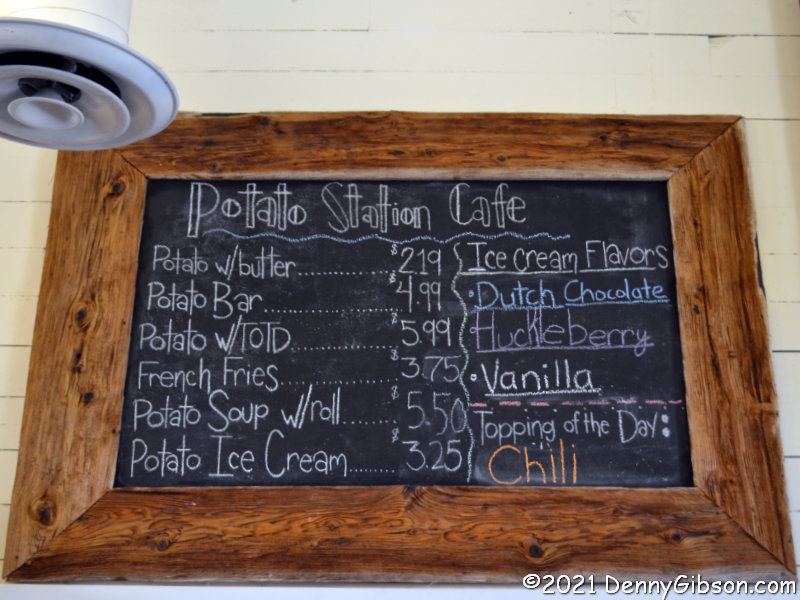 Potato Station Cafe
Potato w/butter............ $2.19
Potato Bar.................. $4.99
Potato w/TOTD............ $5.99
French Fries.............. $3.75
Potato Soup w/roll........ $5.50
Potato Ice Cream....... $3.25
Ice cream Flavors
• Dutch Chocolate
• Huckleberry
• Vanilla
Topping of the Day:
Chili
©2021 DennyGibson.com